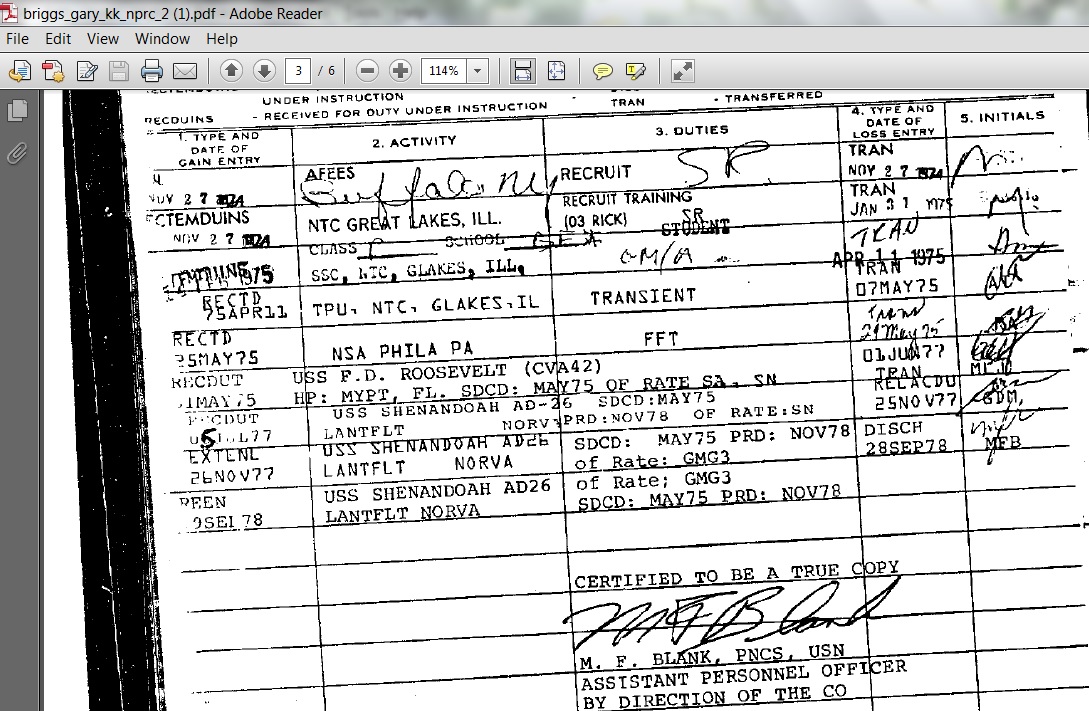 briggs_gary_kk_nprc_2 (1).pdf - Adobe Reader
File Edit View Window Help
3 / 6 114%
UNDER INSTRUCTION
RECDUINS - RECEIVED FOR DUTY UNDER INSTRUCTION TRAN - TRANSFERRED
1. TYPE AND DATE OF GAIN ENTRY 2. ACTIVITY 3. DUTIES 4. TYPE AND DATE OF LOSS ENTRY 5. INITIALS
AFEES RECRUIT SR TRAN
NOV 27 1974 Buffalo, NY NOV 27 1974
CTEMDUINS NTC GREAT LAKES, ILL. RECRUIT TRAINING TRAN
NOV 27 1974 (03 RICK) SR JAN 31 1975
CLASS SCHOOL STUDENT TRAN
1975 SSC, NTC, GLAKES, ILL, APR 11 1975
RECTD TPU, NTC, GLAKES, IL TRANSIENT TRAN
75APR11 07MAY75
RECTD NSA PHILA PA FFT Tran
25MAY75 29 May 75
RECDUT USS F.D. ROOSEVELT (CVA42) 01JUN77
31MAY75 HP: MYPT, FL. SDCD: MAY75 OF RATE SA, SN TRAN
USS SHENANDOAH AD-26 SDCD:MAY75 RELACDU
77 LANTFLT NORVA PRD:NOV78 OF RATE:SN 25NOV77 GDM,
EXTENL USS SHENANDOAH AD26 SDCD: MAY75 PRD: NOV78 DISCH
26NOV77 LANTFLT NORVA of Rate: GMG3 28SEP78 MFB
REEN USS SHENANDOAH AD26 of Rate; GMG3
78 LANTFLT NORVA SDCD: MAY75 PRD: NOV78
CERTIFIED TO BE A TRUE COPY
M F Blank
M. F. BLANK, PNCS, USN
ASSISTANT PERSONNEL OFFICER
BY DIRECTION OF THE CO